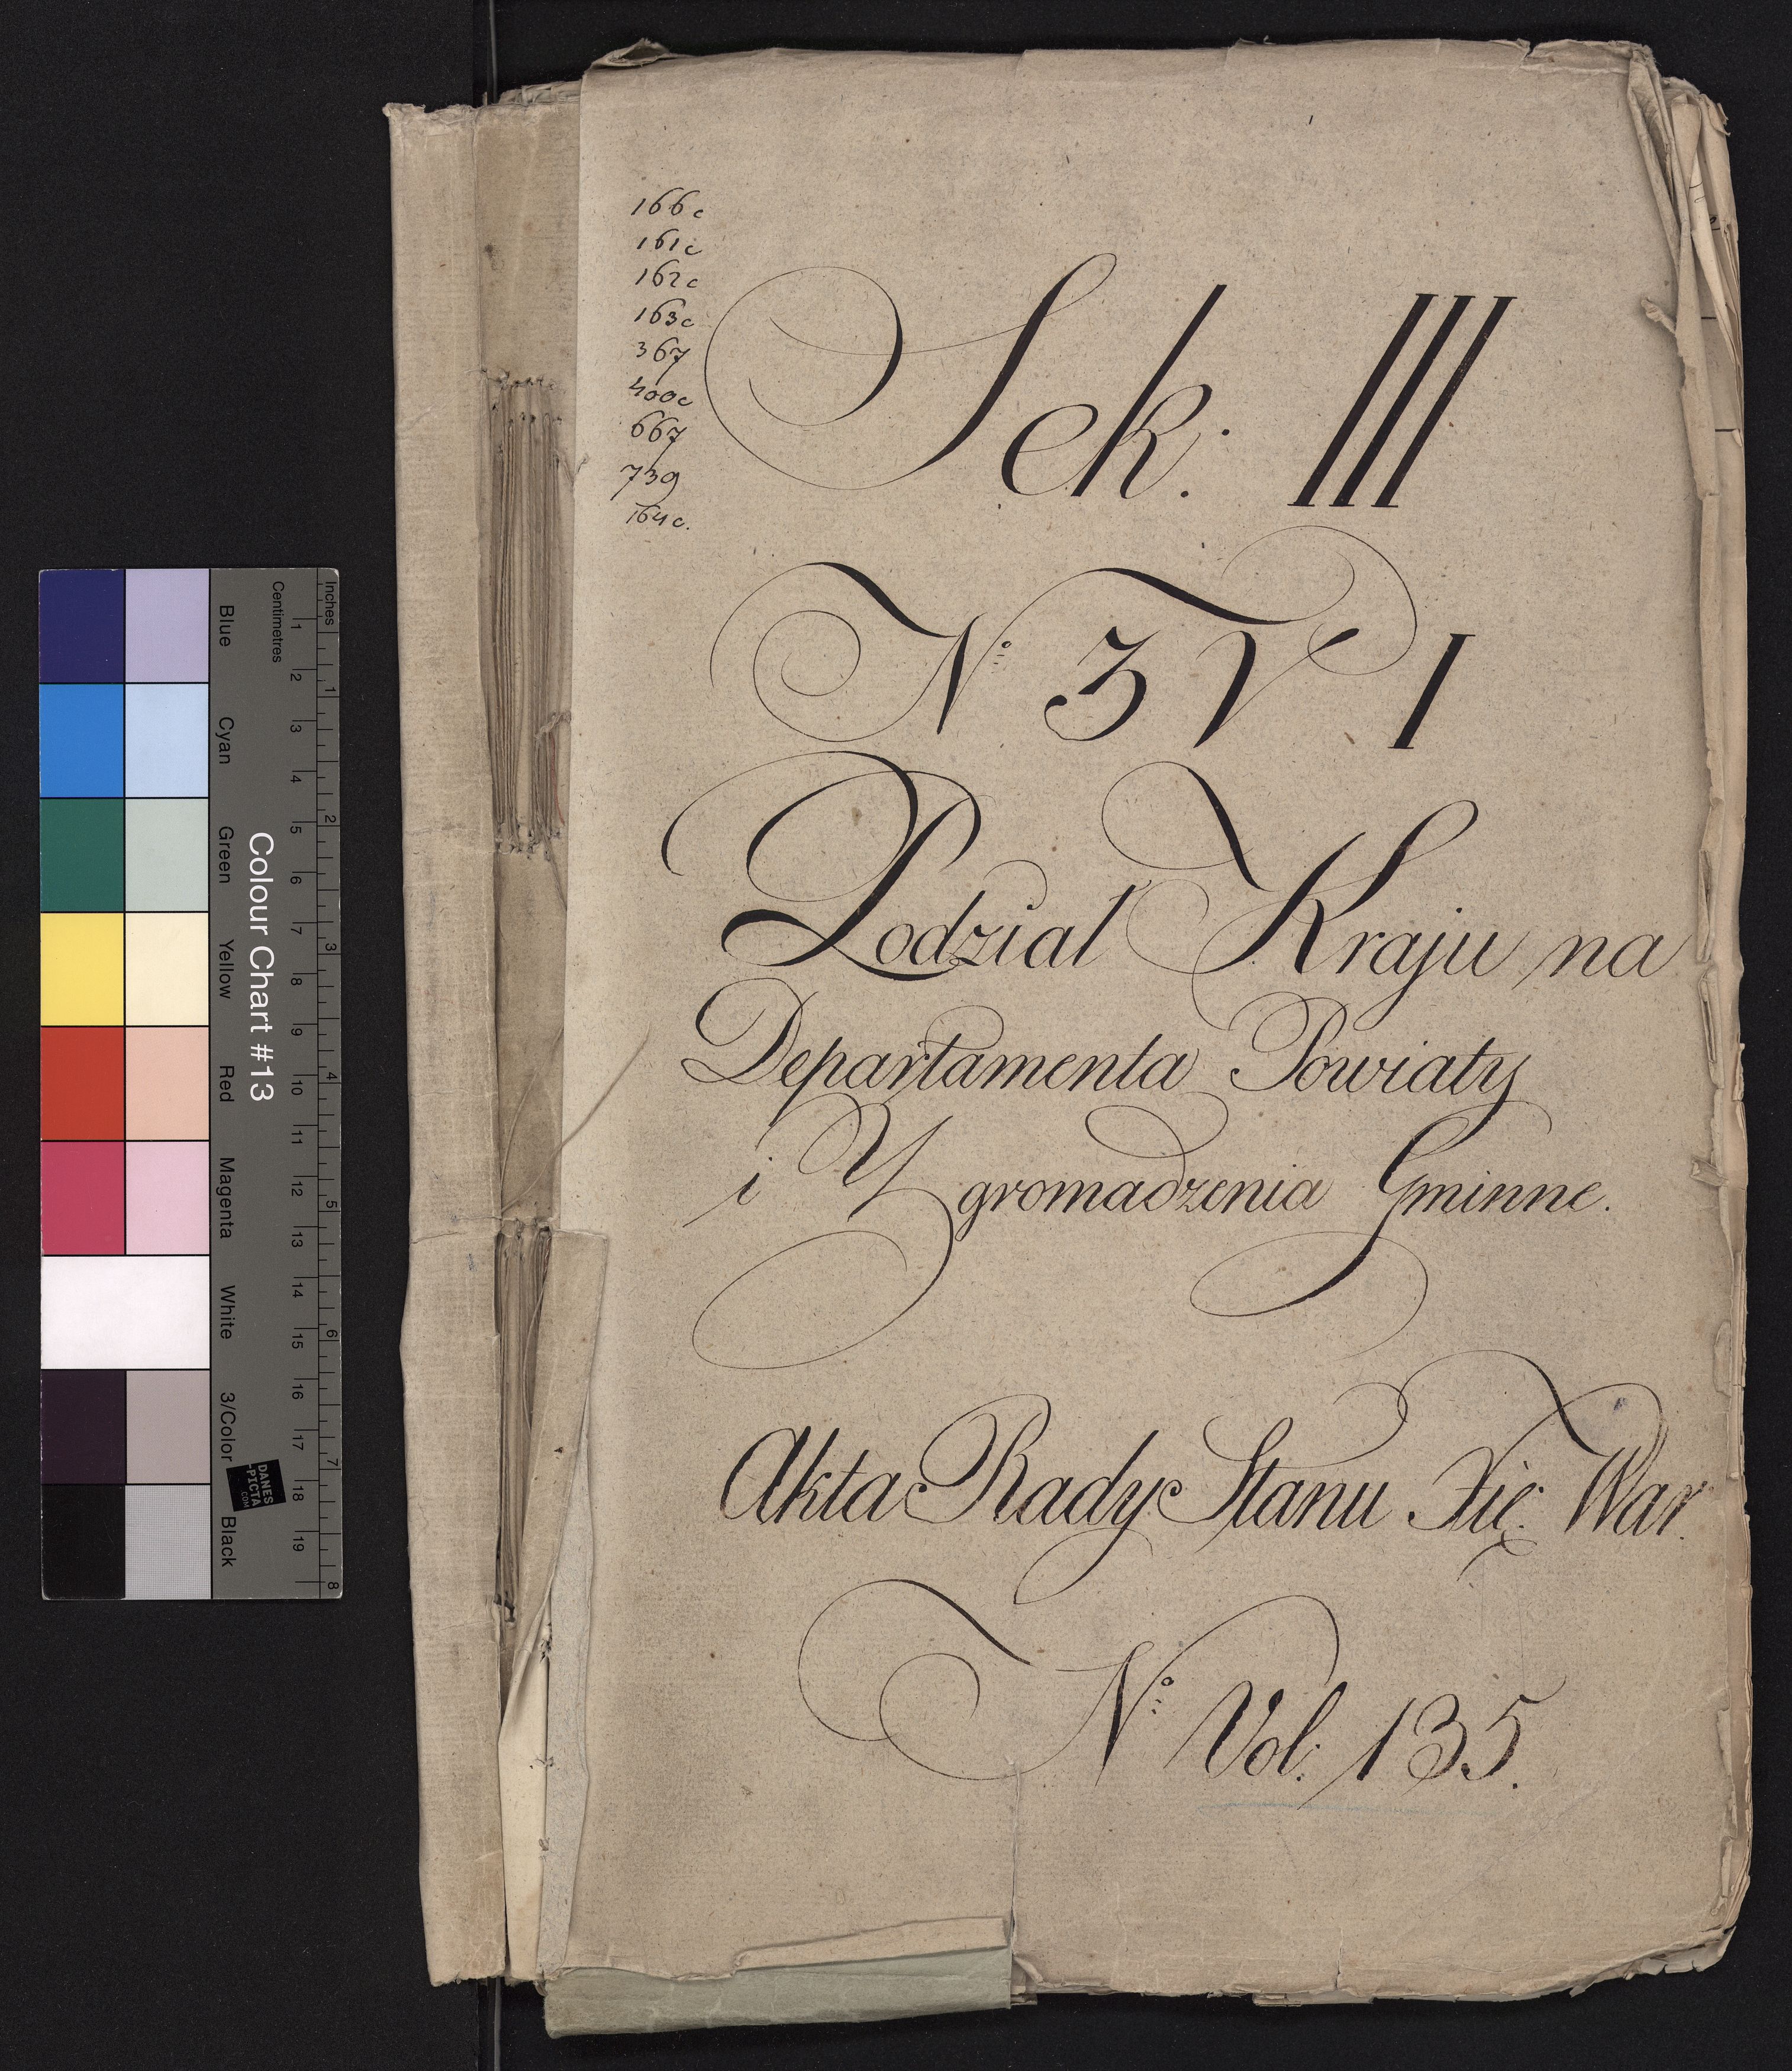 166c
161c
162c
163c
367
400c
667
739
164c.
Sek: III
No 3 V I
Podzial Kraju na
Departamenta Powiaty
i Zgromadzenia Gminne.
Akta Rady Stanu Xię: War.
No Vol: 135.
Colour Chart #13
Blue Cyan Green Yellow Red Magenta White 3/Color Black
Centimetres 1 2 3 4 5 6 7 8 9 10 11 12 13 14 15 16 17 18 19
Inches 1 2 3 4 5 6 7 8
DANES
-PICTA
.COM